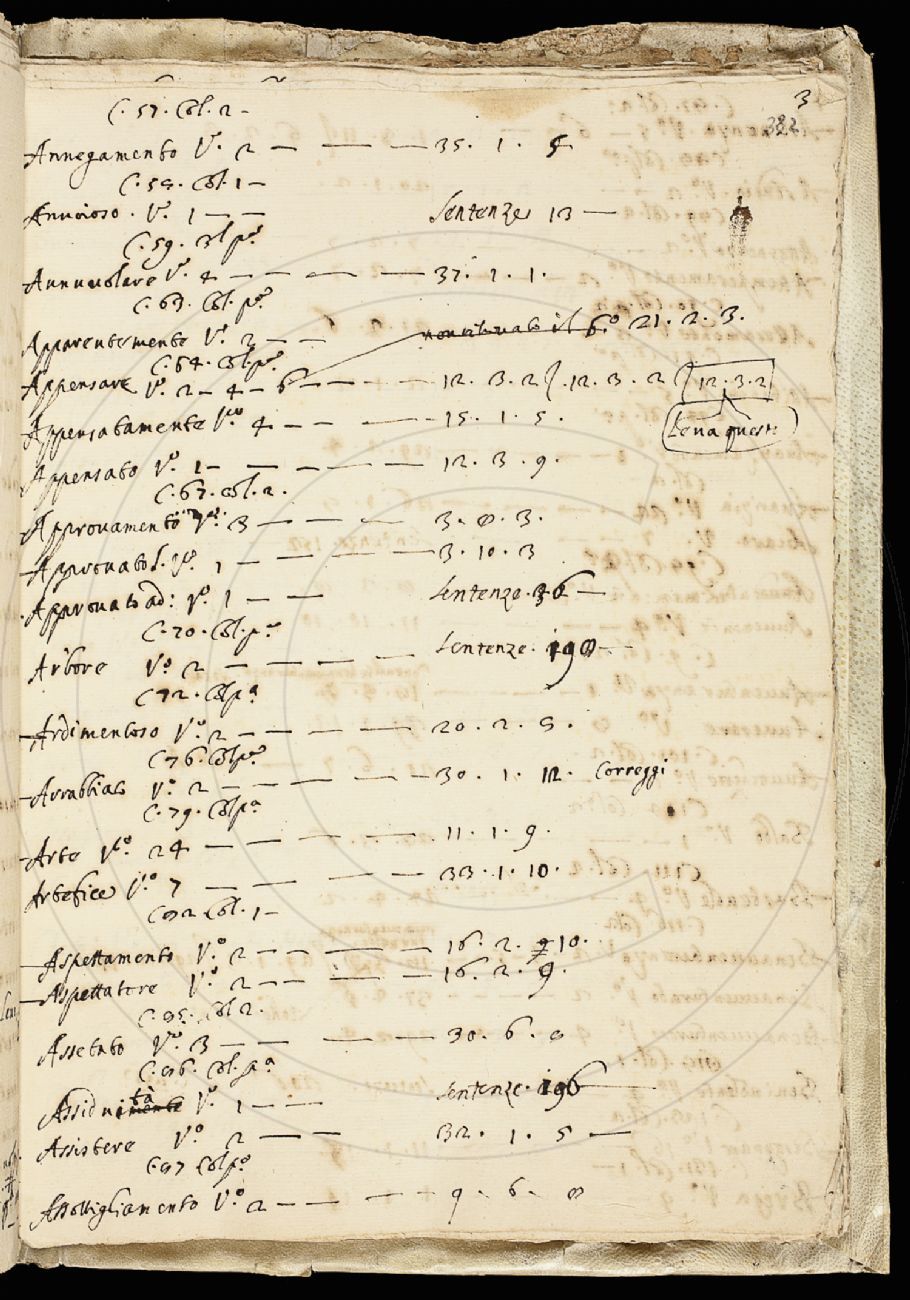 3
382
C. 57. Col. 2 -
Annegamento V.º 2 — — 35. 1. 5
C. 58. Col. 1 -
Annoioso. V.º 1 — — Sentenze 13 —
C. 59. Col pº
Annuvolare V.º 4 — — — — 37. 1. 1.
C. 63. Col. pº
Apparentemente V.º 2 — — non citinato il 6º 21. 2. 3.
C. 64. Col. pº
Appensare V.º 2 — 4 — 6 — — — 12. 3. 2 . 12. 3. 2 12. 3. 2
Leva questi
Appensatamente V.º 4 — — — — 15. 1. 5.
Appensato V.º 1 — — — — — 12. 3. 9.
C. 67. Col. 2.
Approvamento V.º 3 — — — — 3. 8. 3.
Approvato S. V.º 1 — — — — 3. 10. 3
Approvato ad: V.º 1 — — Sentenze. 36 —
C. 70. Col. pº
Arbore V.º 2 — — — — Sentenze. 198 —
C 72. Col pª
Ardimentoso V.º 2 — — — — 20. 2. 8.
C 76. Col pº
Arrabbiato V.º 2 — — — — 30. 1. 12. Correggi
C. 79. Col pª
Arte V.º 24 — — — — 11. 1. 9.
Artefice V.º 7 — — — — 33. 1. 10.
C 92 Col. 1 -
Aspettamento V.º 2 — — — — 16. 2. 9 10.
Aspettatore V.º 2 — — — — 16. 2. 9.
C. 95. Col 2.
Assetato V.º 3 — — — — 30. 6. 8
C. 96. Col. pª
Assiduità V.º 1 — — Sentenze. 196 —
Assistere V.º 2 — — 32. 1. 5 —
C. 97 Col pº
Assottigliamento V.º 2 — — — — 9. 6. 8